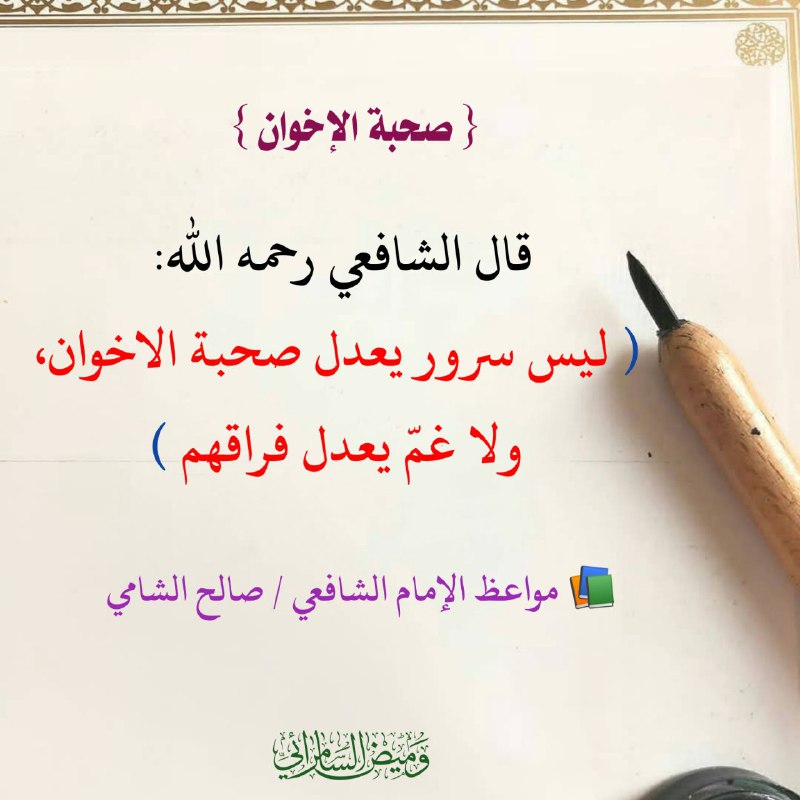 { صحبة الإخوان }
قال الشافعي رحمه الله:
( ليس سرور يعدل صحبة الاخوان،
ولا غمّ يعدل فراقهم )
مواعظ الإمام الشافعي / صالح الشامي
وَمِيضُ السَّامَرَّائِيّ